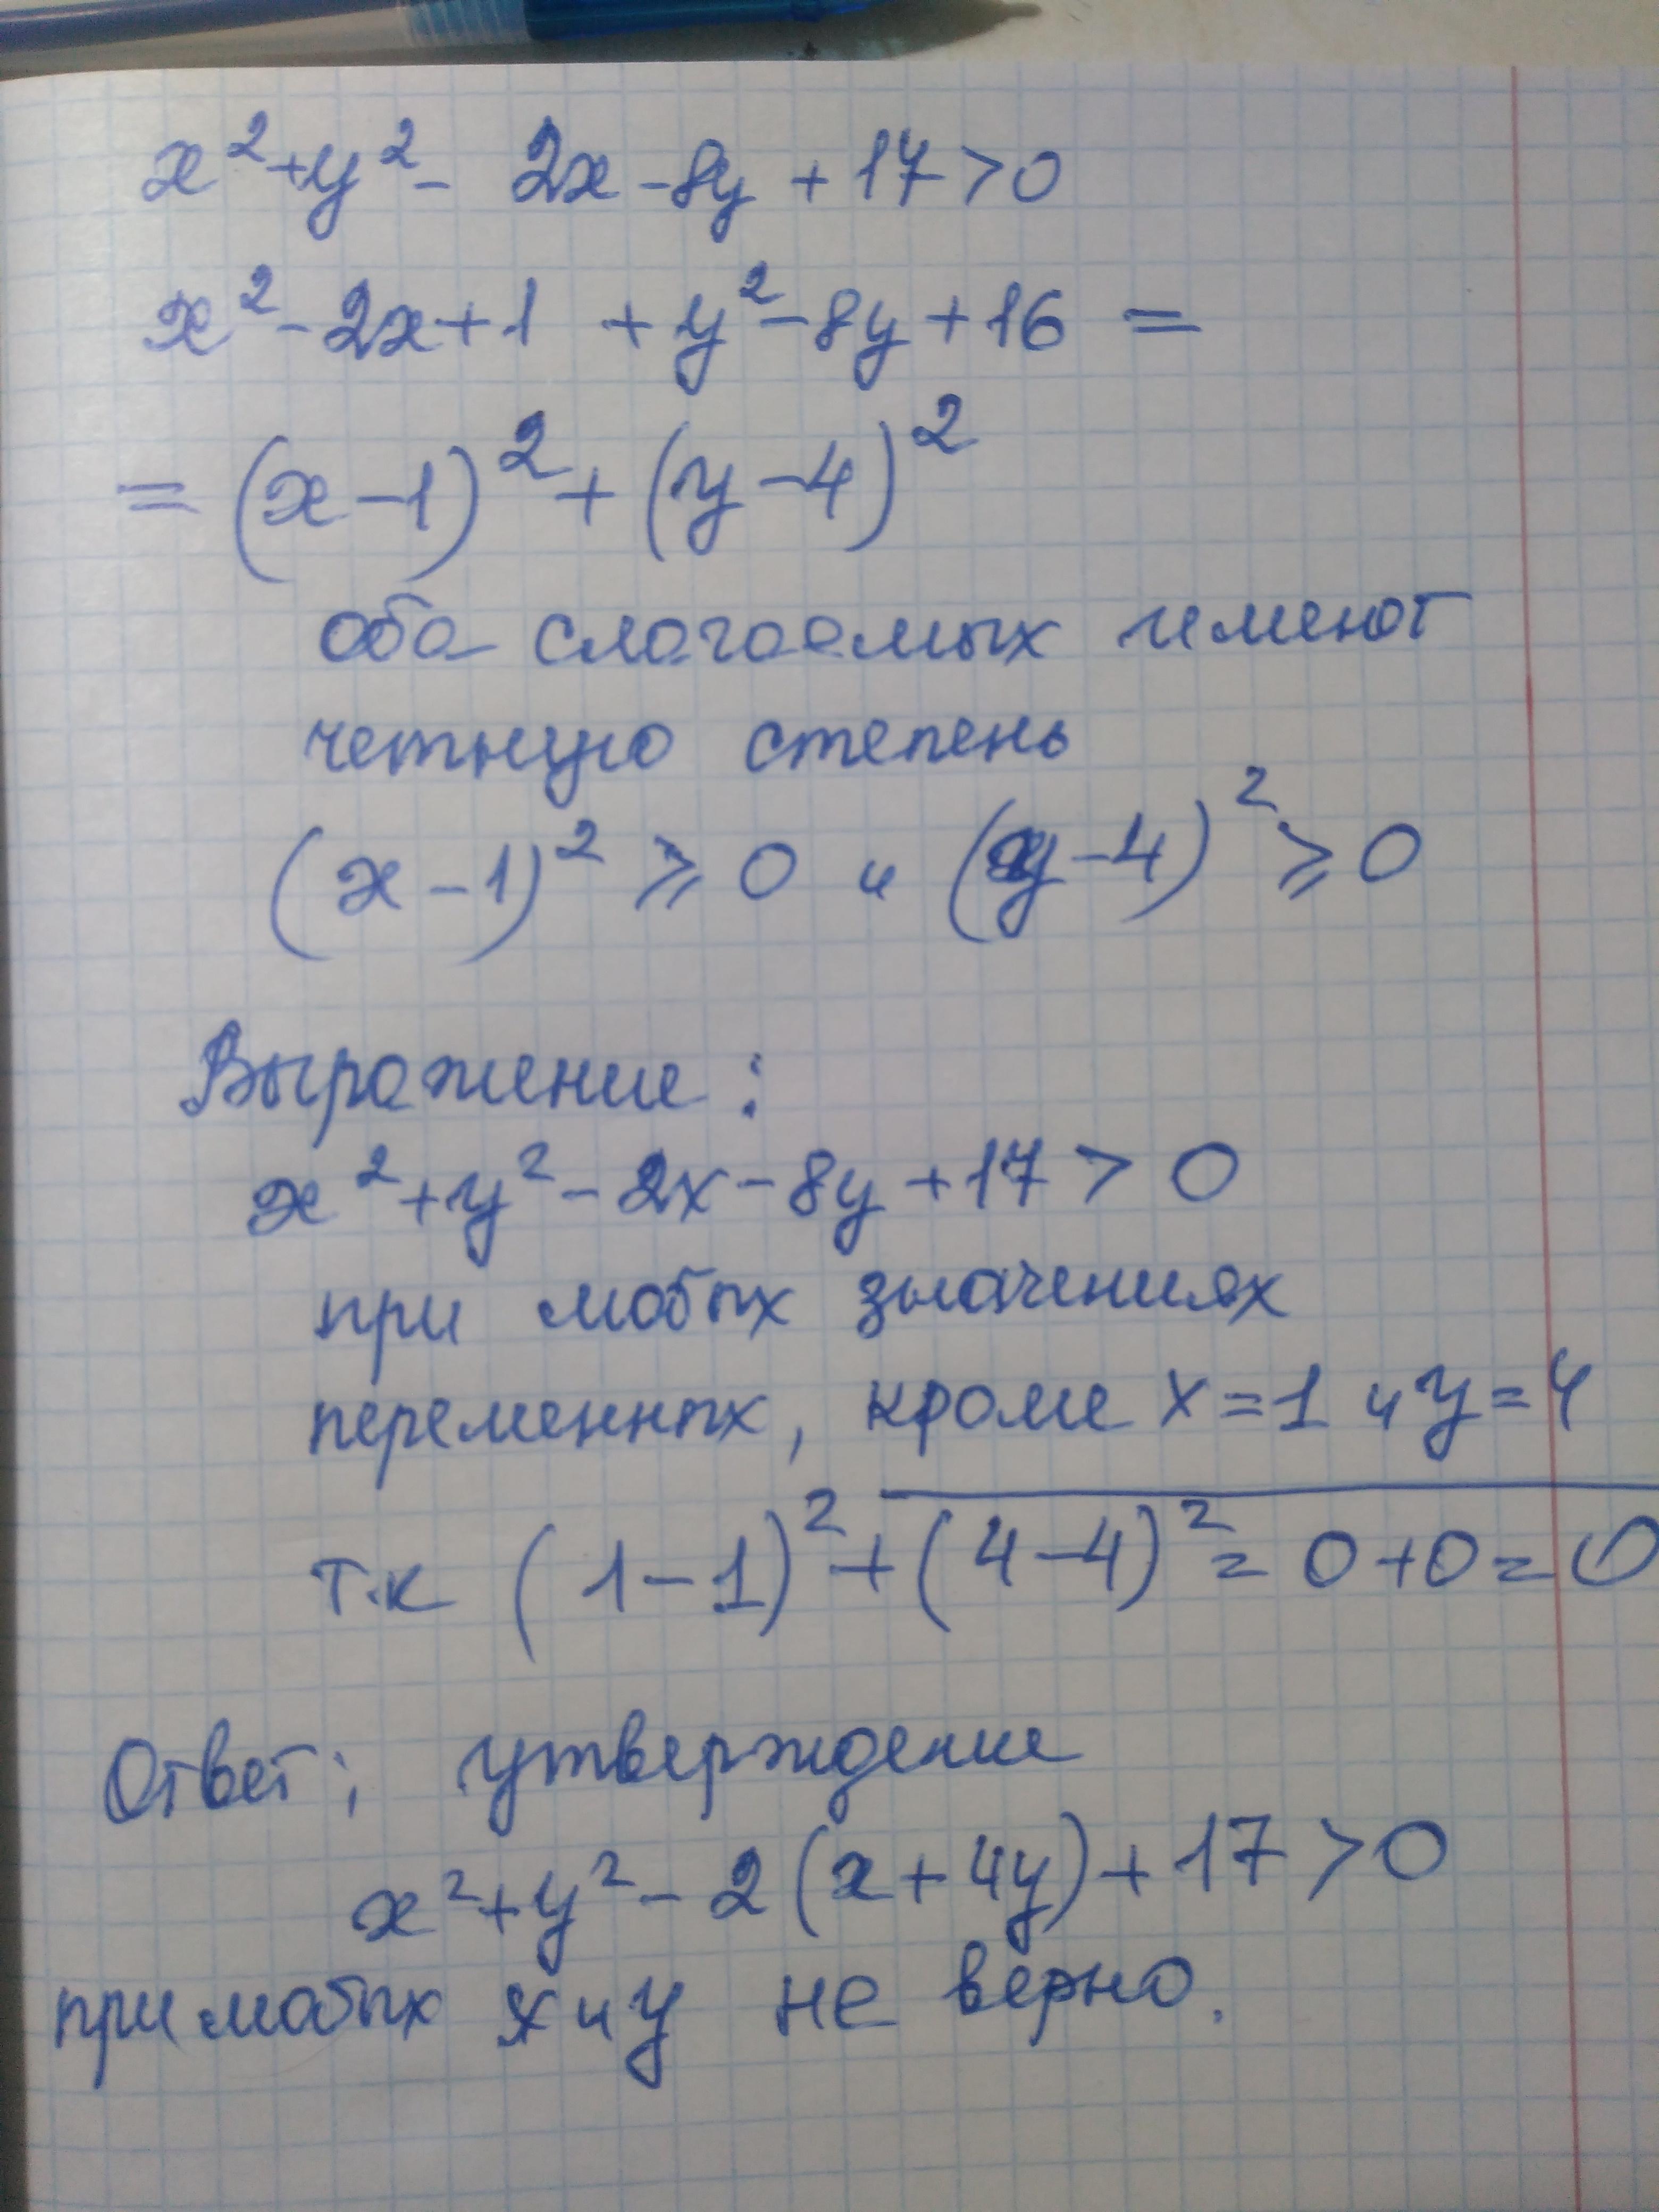 x² + y² - 2x - 8y + 17 > 0
x² - 2x + 1 + y² - 8y + 16 =
= (x - 1)² + (y - 4)²
оба слагаемых имеют
четную степень
(x - 1)² ⩾ 0 и (y - 4)² ⩾ 0
Выражение:
x² + y² - 2x - 8y + 17 > 0
при любых значениях
переменных, кроме x = 1 и y = 4
т.к (1 - 1)² + (4 - 4)² = 0 + 0 = 0
Ответ: утверждение
x² + y² - 2(x + 4y) + 17 > 0
при любых x и y не верно.